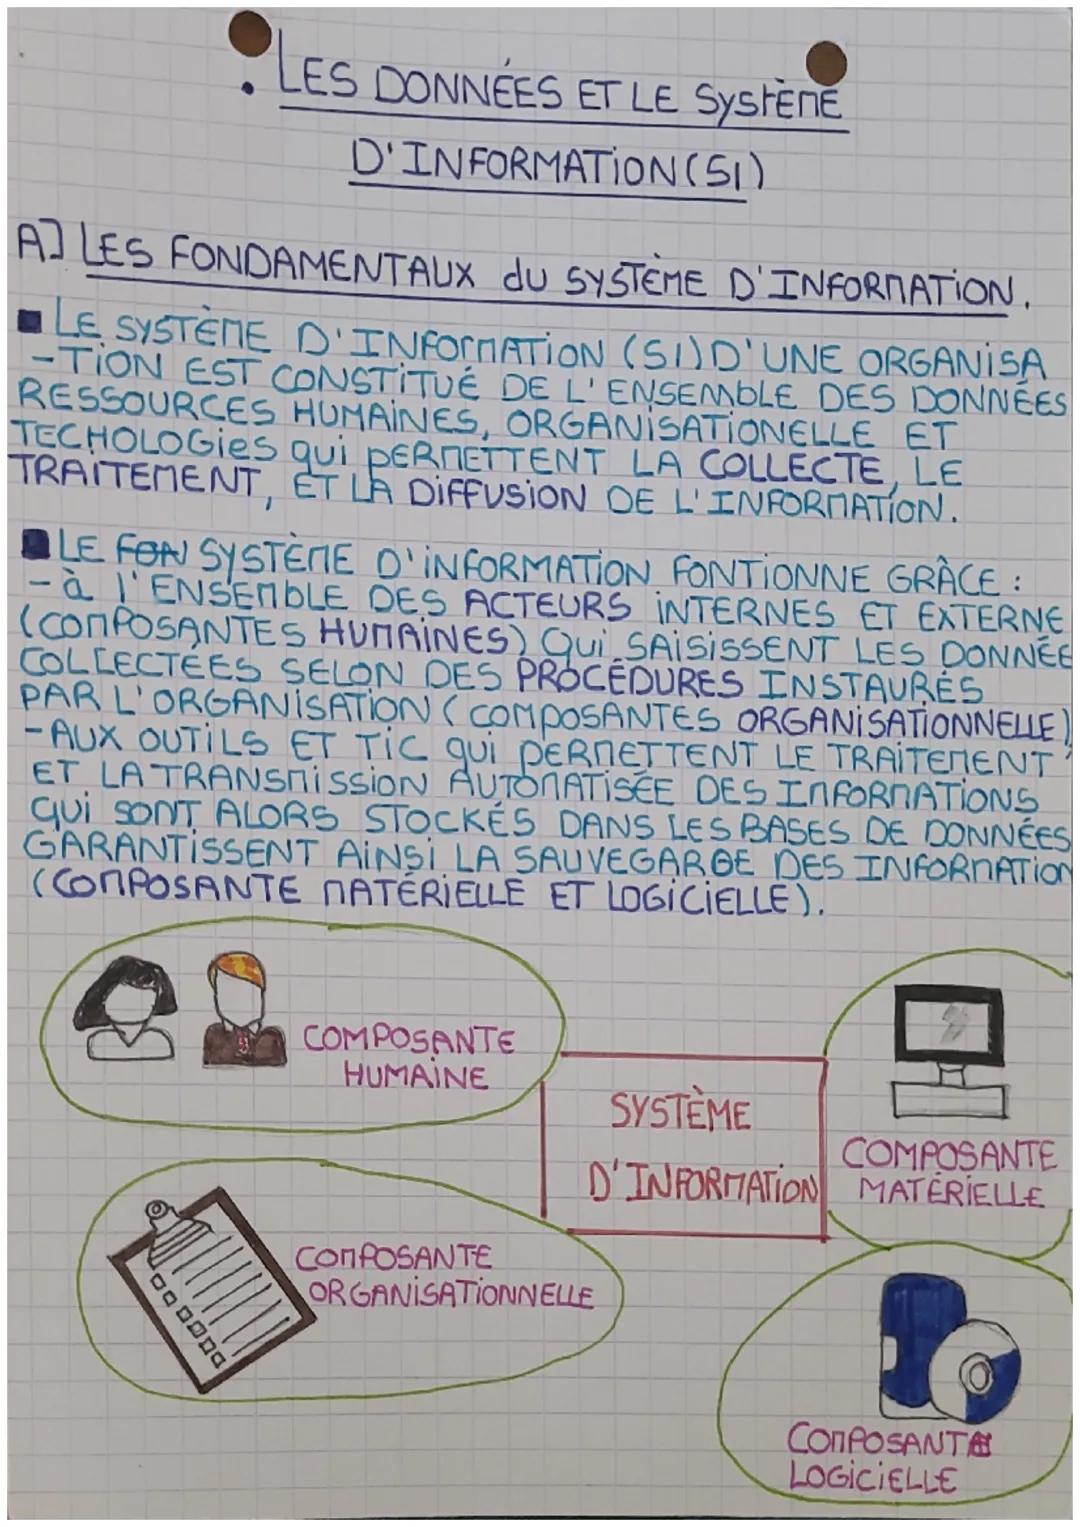 LES DONNÉES ET LE SYSTÈME
D'INFORMATION (SI)
A] LES FONDAMENTAUX du SYSTÈME D'INFORMATION.
■ LE SYSTÈME D'INFORMATION (SI) D'UNE ORGANISA
-TION EST CONSTITUÉ DE L'ENSEMBLE DES DONNÉES
RESSOURCES HUMAINES, ORGANISATIONELLE ET
TECHOLOGIES qui PERMETTENT LA COLLECTE, LE
TRAITEMENT, ET LA DIFFUSION DE L'INFORMATION.
■ LE SYSTÈME D'INFORMATION FONTIONNE GRÂCE :
- à l'ENSEMBLE DES ACTEURS INTERNES ET EXTERNE
(COMPOSANTES HUMAINES) QUI SAISISSENT LES DONNÉE
COLLECTÉES SELON DES PROCÉDURES INSTAURÉS
PAR L'ORGANISATION (COMPOSANTES ORGANISATIONNELLE)
- AUX OUTILS ET TIC qui PERMETTENT LE TRAITEMENT
ET LA TRANSMISSION AUTOMATISÉE DES INFORMATIONS
QUI SONT ALORS STOCKÉS DANS LES BASES DE DONNÉES
GARANTISSENT AINSI LA SAUVEGARDE DES INFORMATION
(COMPOSANTE MATÉRIELLE ET LOGICIELLE).
COMPOSANTE
HUMAINE
SYSTÈME
D'INFORMATION
COMPOSANTE
MATÉRIELLE
COMPOSANTE
ORGANISATIONNELLE
COMPOSANTE
LOGICIELLE